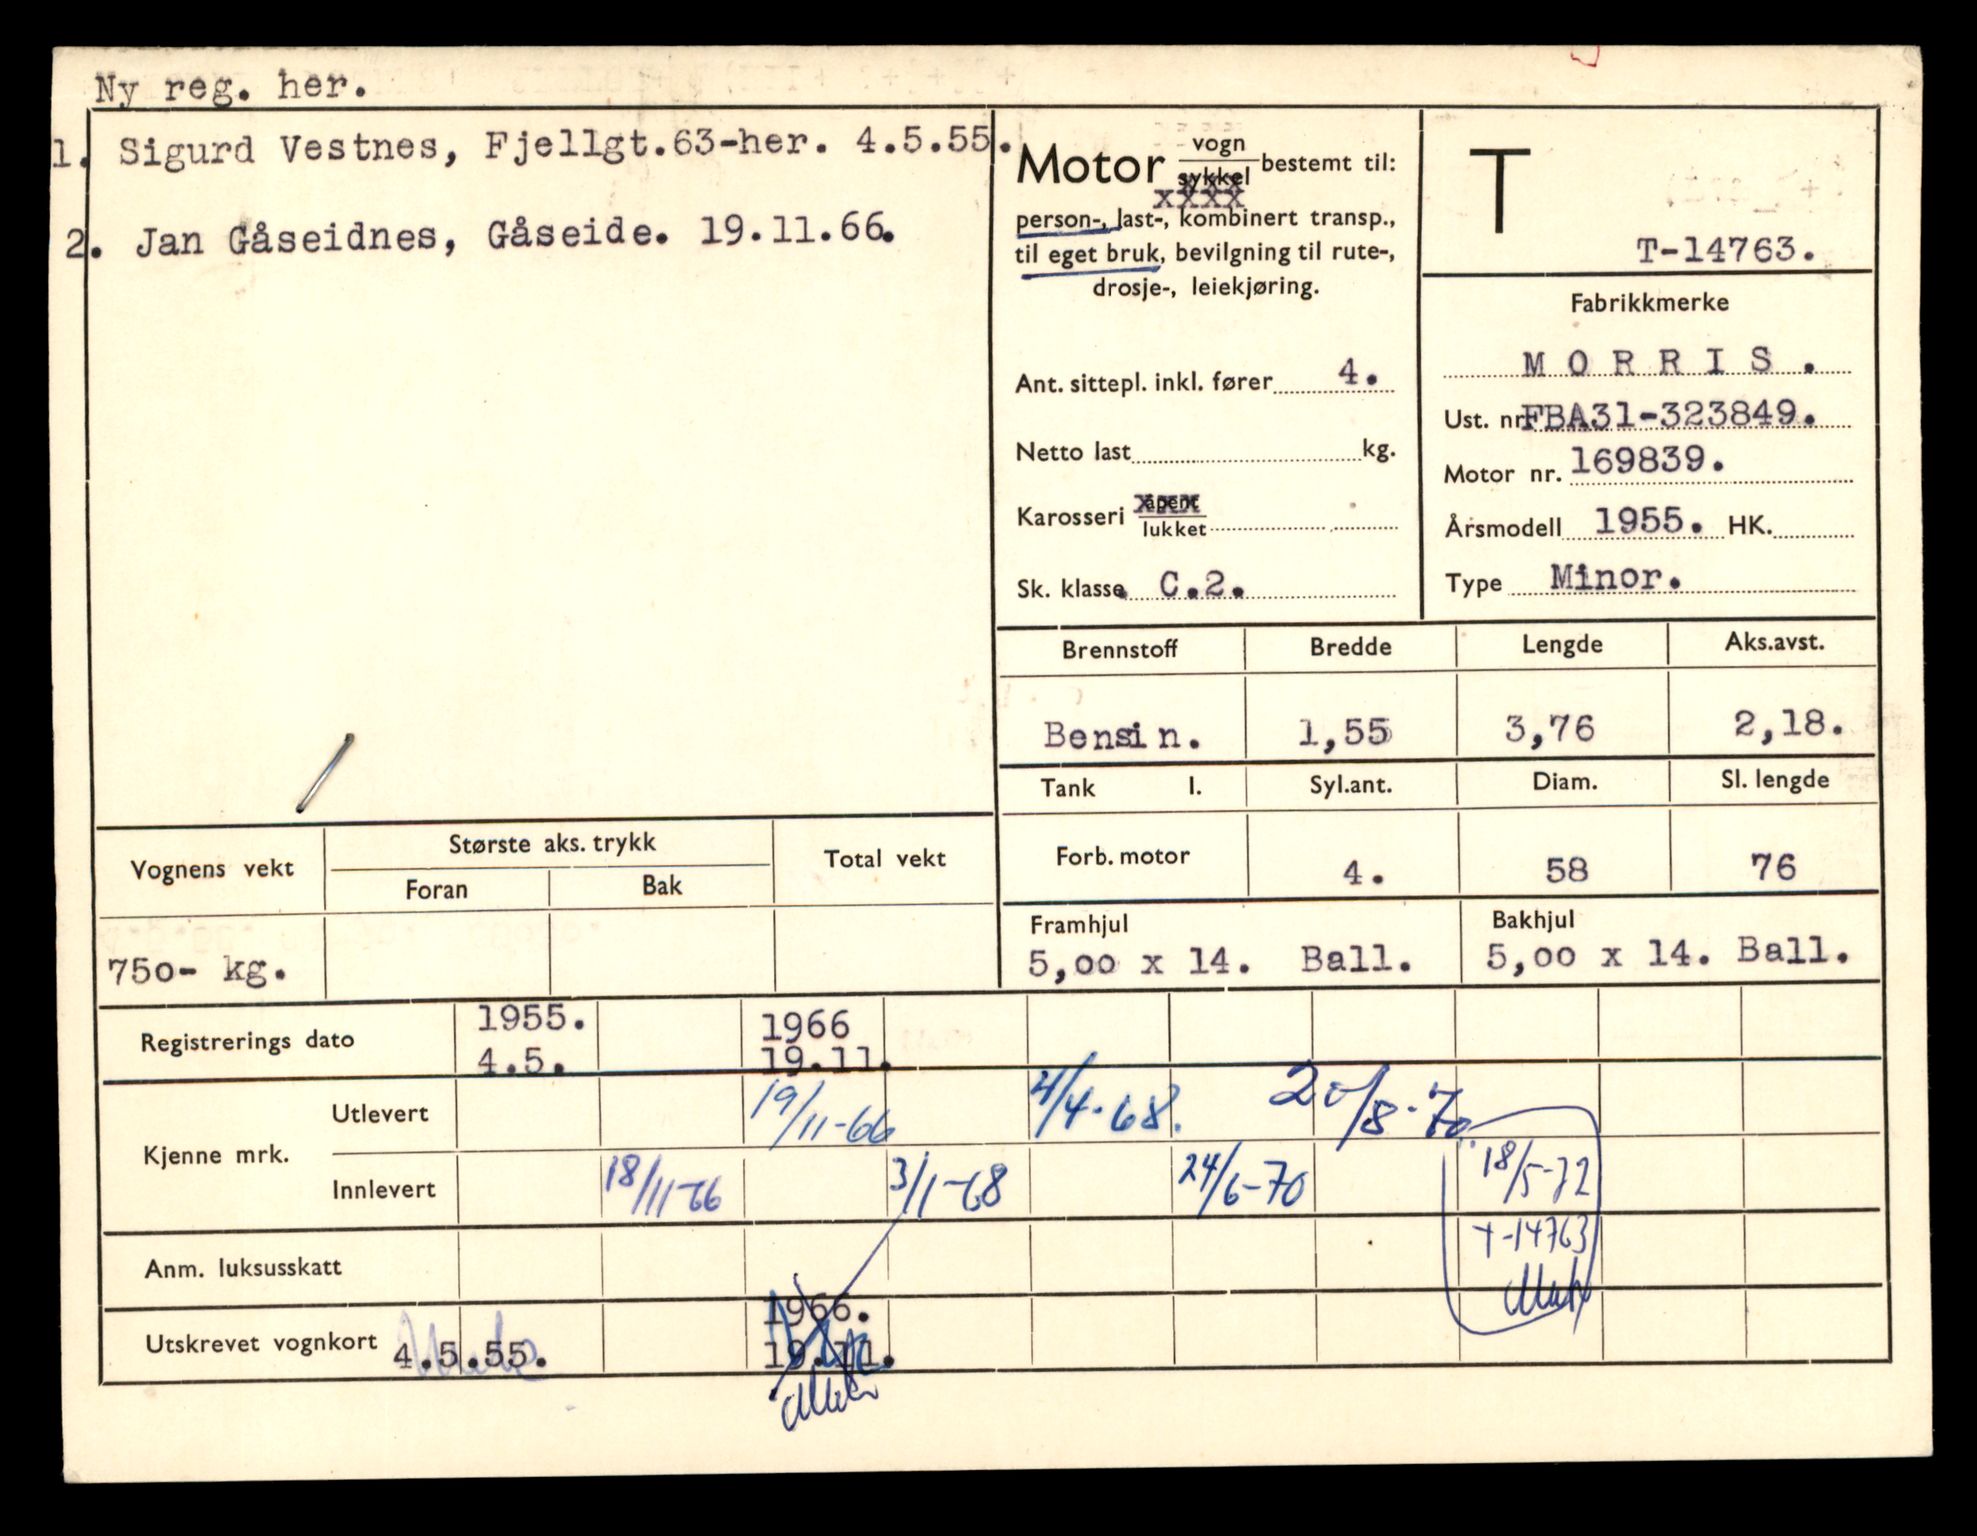 Ny reg. her.
1. Sigurd Vestnes, Fjellgt.63-her. 4.5.55.
2. Jan Gåseidnes, Gåseide. 19.11.66.
Motor vogn/sykkel bestemt til:
xxxx
person-, last-, kombinert transp.,
til eget bruk, bevilgning til rute-,
drosje-, leiekjøring.
Ant. sittepl. inkl. fører 4.
Netto last kg.
Karosseri åpent/lukket
Sk. klasse C.2.
T
T-14763.
Fabrikkmerke
MORRIS.
Ust. nr. FBA31-323849.
Motor nr. 169839.
Årsmodell 1955. HK.
Type Minor.
Brennstoff Bredde Lengde Aks.avst.
Bensin. 1,55 3,76 2,18.
Tank l. Syl.ant. Diam. Sl. lengde
Forb. motor 4. 58 76
Framhjul Bakhjul
5,00 x 14. Ball. 5,00 x 14. Ball.
Vognens vekt Største aks. trykk Total vekt
Foran Bak
750- kg.
Registrerings dato 1955. 1966
4.5. 19.11.
Kjenne mrk.
Utlevert 19/11-66 4/4-68. 20/8-70
Innlevert 18/11-66 3/1-68 24/6-70 18/5-72
T-14763
Anm. luksusskatt
1966.
Utskrevet vognkort 4.5.55. 19.11.